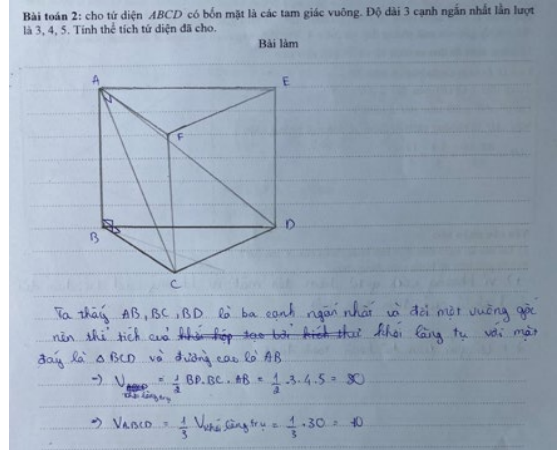 Bài toán 2: cho tứ diện ABCD có bốn mặt là các tam giác vuông. Độ dài 3 cạnh ngắn nhất lần lượt
là 3, 4, 5. Tính thể tích tứ diện đã cho.
Bài làm
A
E
F
B
D
C
Ta thấy AB, BC, BD là ba cạnh ngắn nhất và đôi một vuông góc
nên thể tích của khối hộp tạo bởi kích thư khối lăng trụ với mặt
đáy là Δ BCD và đường cao là AB
→ V khối lăng trụ = 1/2 BD.BC.AB = 1/2 .3.4.5 = 30
→ VABCD = 1/3 Vkhối lăng trụ = 1/3 . 30 = 10